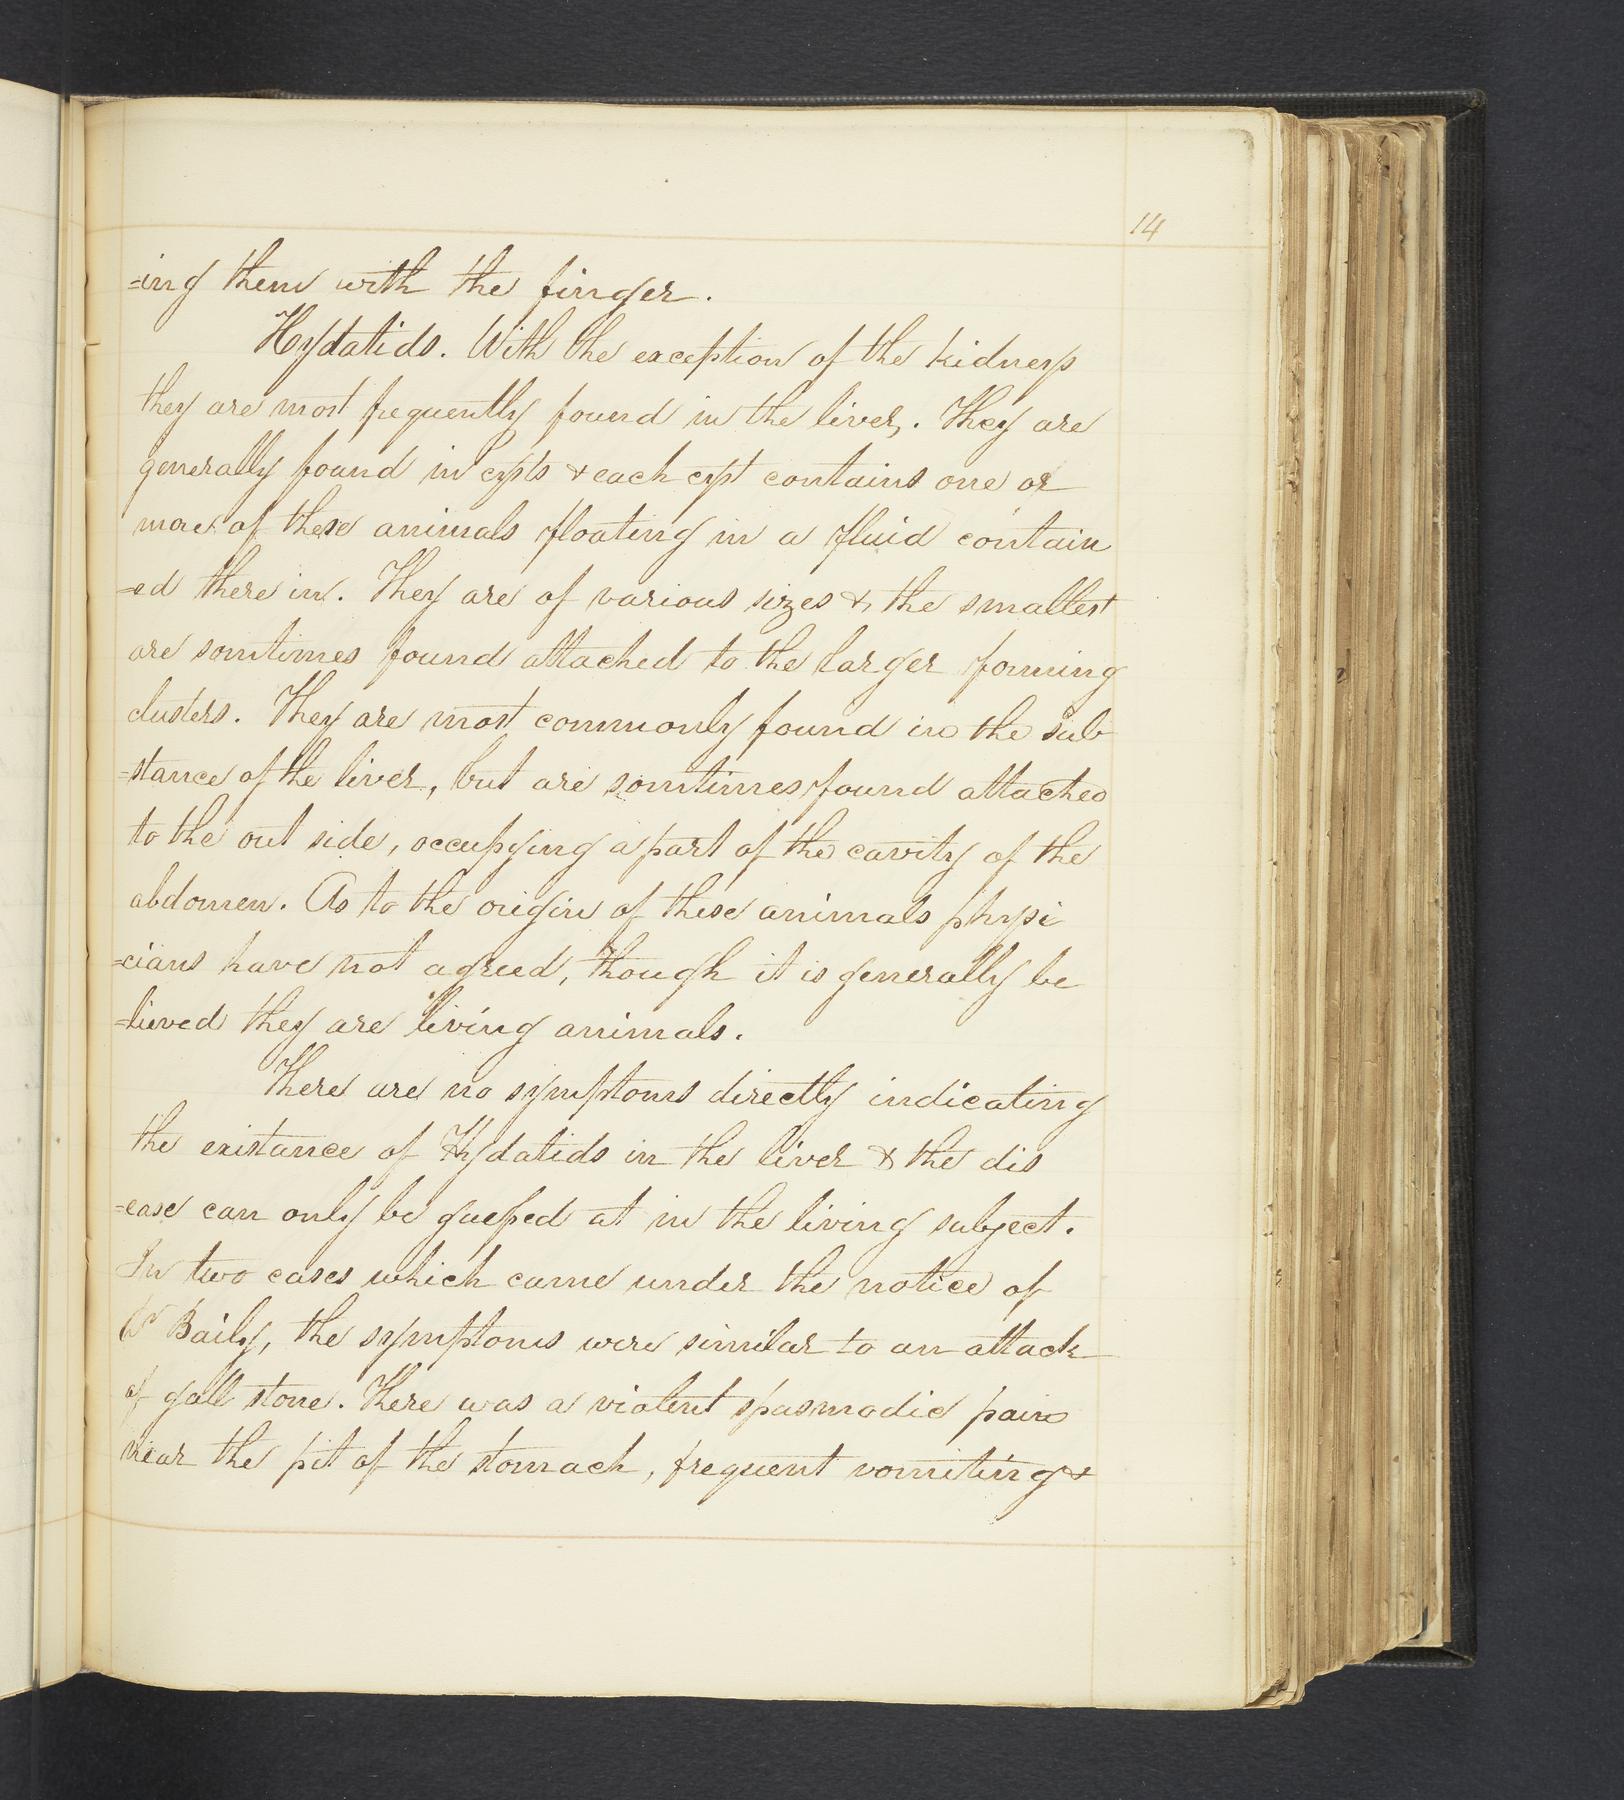 14
=ing them with the finger.
Hydatids. With the exception of the kidneys
they are most frequently found in the liver,. They are
generally found in cysts & each cyst contains one or
more of these animals floating in a fluid contain
=ed there in. They are of various sizes & the smallest
are somtimes found attached to the larger forming
clusters. They are most commonly found in the sub
=stance of the liver, but are somtimes found attached
to the out side, occupying a part of the cavity of the
abdomen. As to the origin of these animals physi
=cians have not agreed, though it is generally be
=lieved they are living animals.
There are no symptoms directly indicating
the existance of Hydatids in the liver & the dis
=ease can only be guessed at in the living subject.
In two cases which came under the notice of
Dr Baily, the symptoms were similar to an attack
of gall stone. There was a violent spasmodic pain
near the pit of the stomach, frequent vomiting &